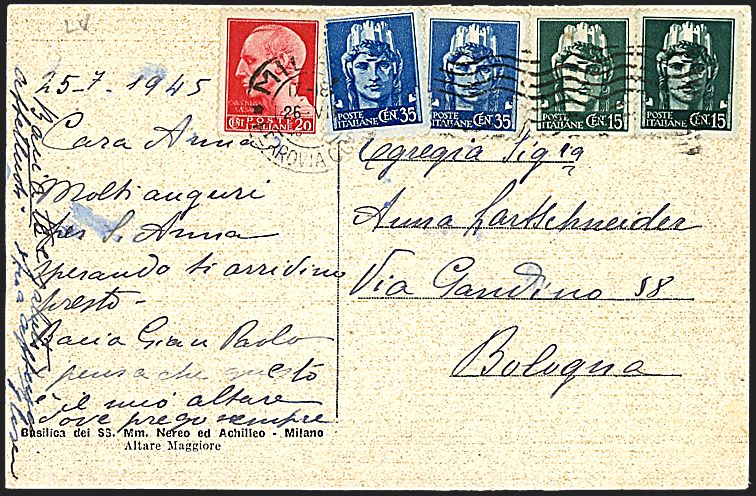 LV
25-7-1945
Cara Anna
Molti auguri
per S. Anna
sperando ti arridino
presto -
Bacia Gian Paolo
pensa che questo
è il mio altare
dove prego sempre
Bacia te
affettuosi
Basilica dei SS. Mm. Nereo ed Achilleo - Milano
Altare Maggiore
POSTE
ITALIANE
CENT 20
POSTE
ITALIANE CEN. 35
POSTE
ITALIANE CEN. 35
POSTE
ITALIANE CEN. 15
POSTE
ITALIANE CEN. 15
MIL
FERROVIA
Egregia Sig.ra
Anna Gartschneider
Via Gandino 58
Bologna